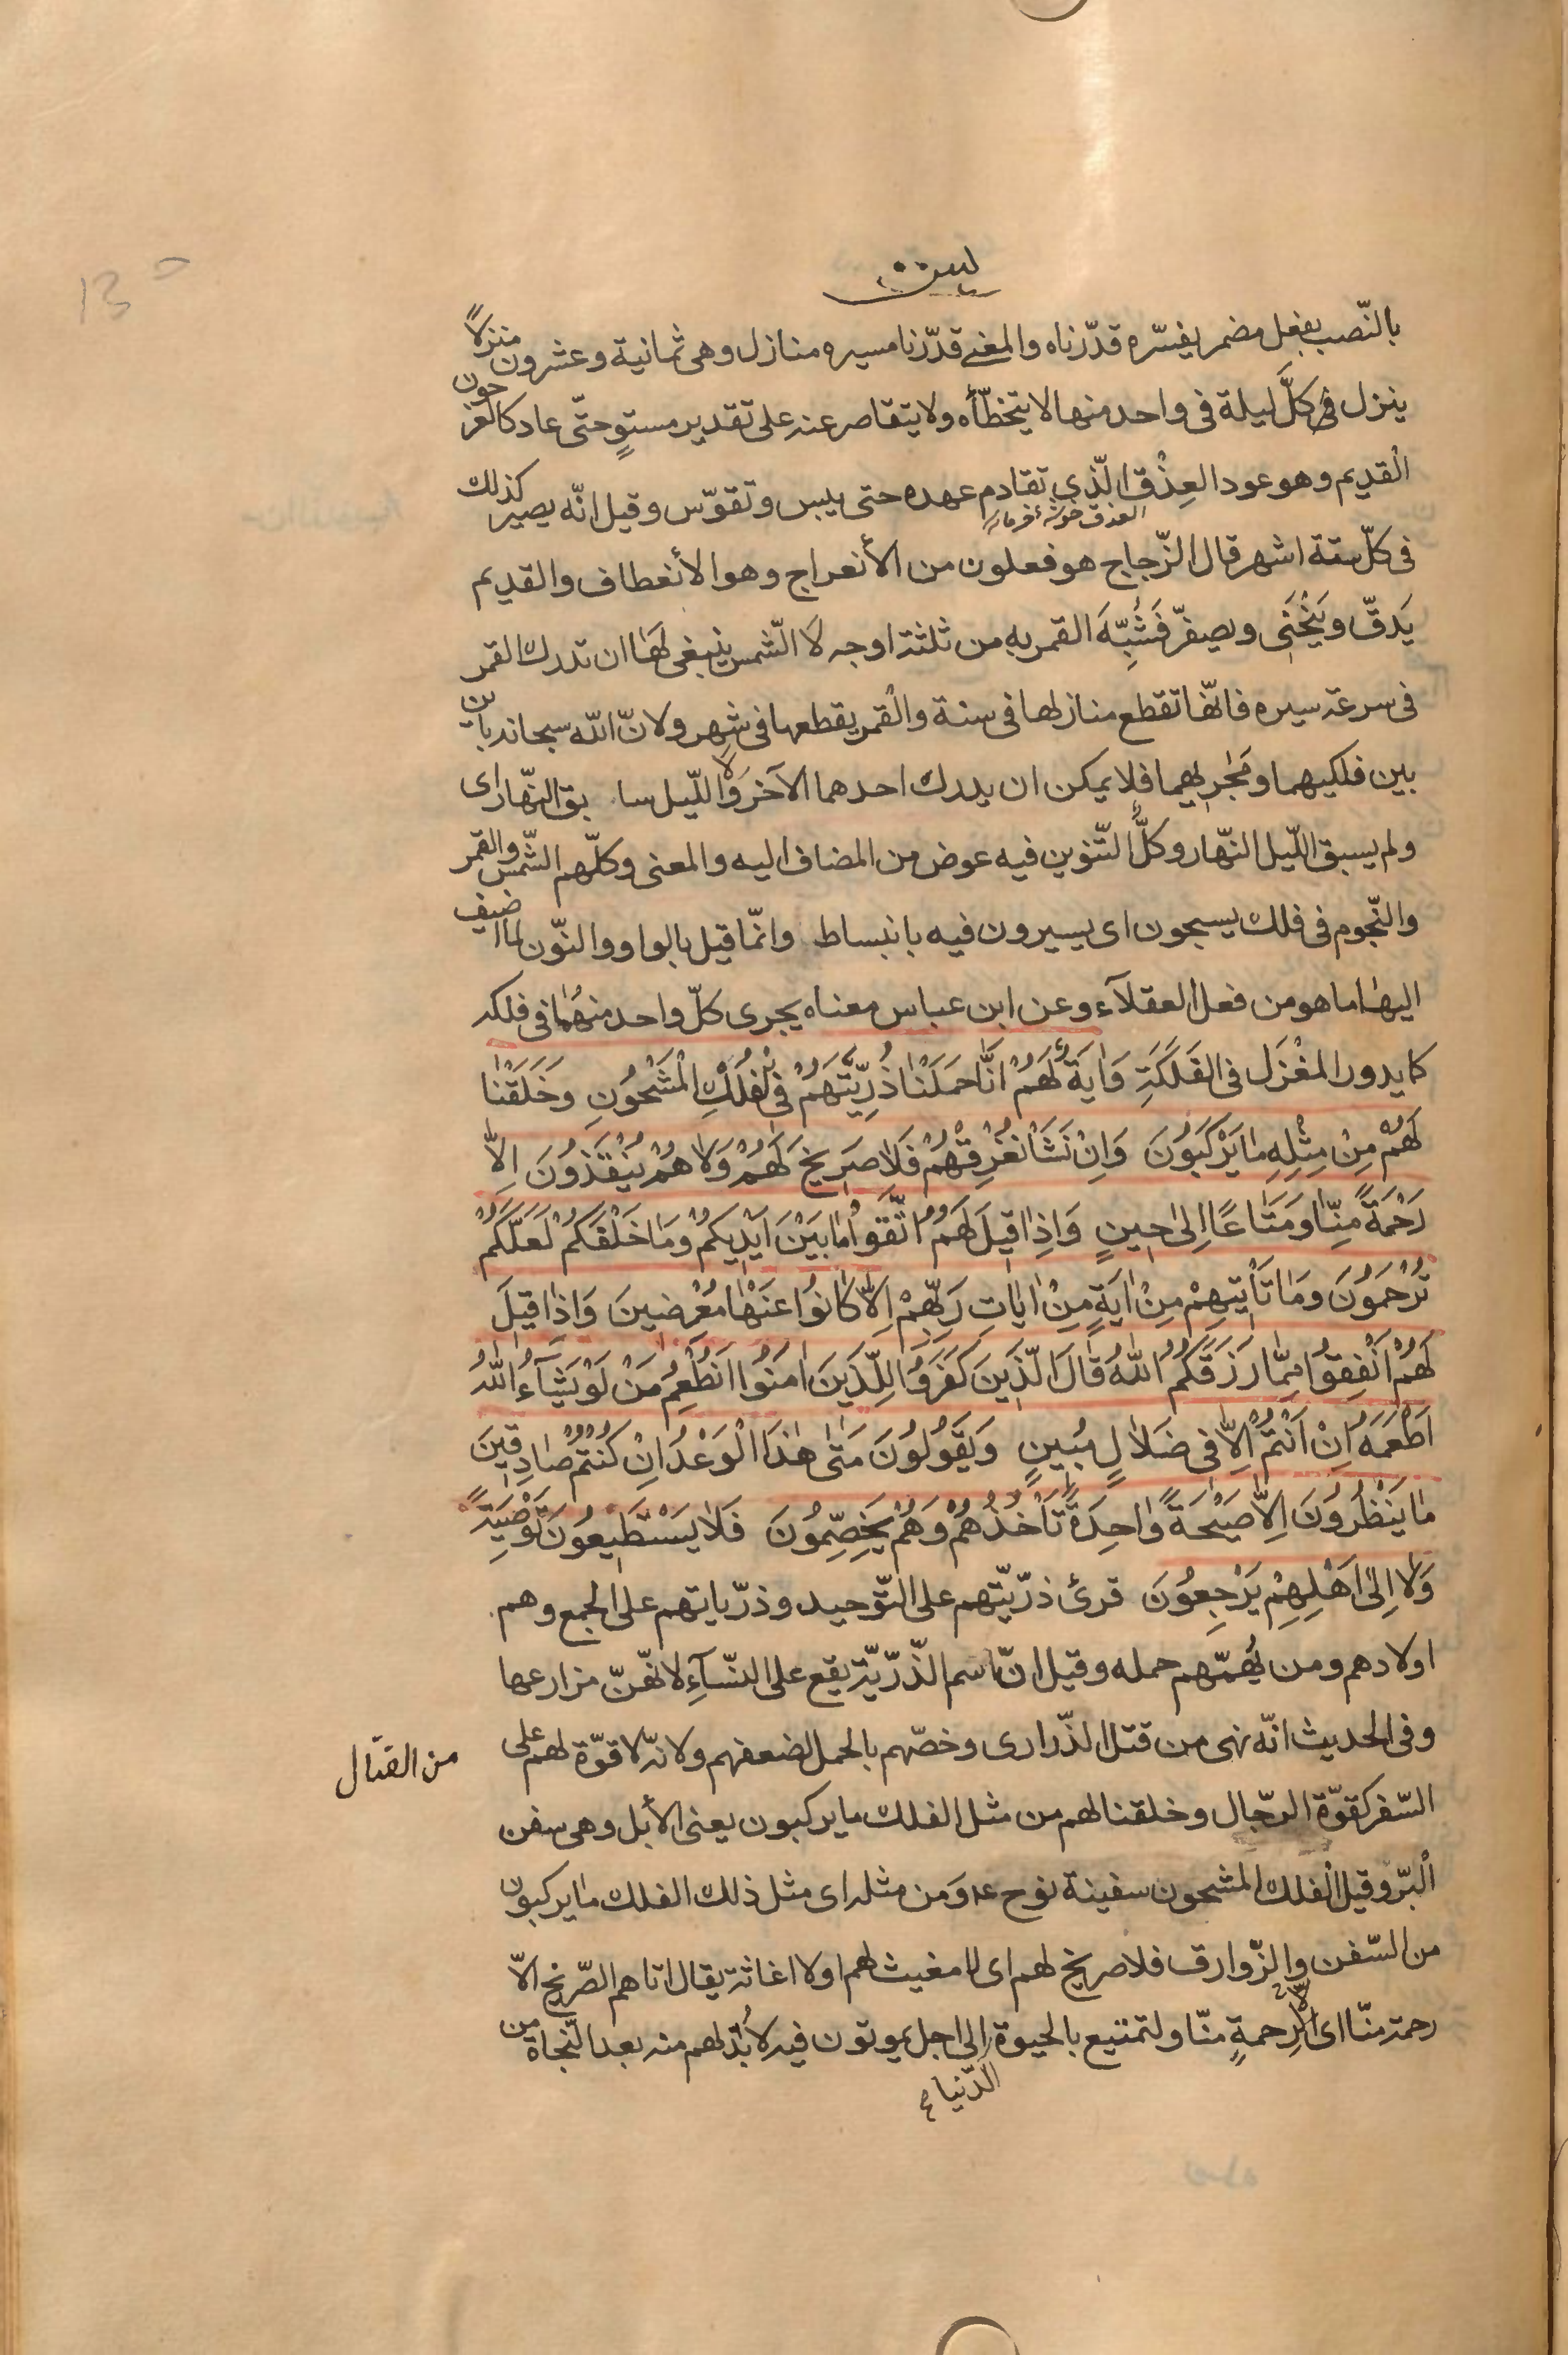 يس
بالنّصب بفعل مضمر يفسّره قدّرناه والمعنى قدّرنا مسيره منازل وهى ثمانية وعشرون منزلاً
ينزل فى كلّ ليلة فى واحد منها لا يتخطّأه ولا يتقاصر عنه على تقدير مستوٍ حتّى عاد كالعرجون
القديم وهو عود العِذْق الّذى تقادم عهده حتى يبس وتقوّس وقيل انّه يصير كذلك
العذق خوشهٔ خرما
فى كلّ ستة اشهر قال الزّجاج هو فعلون من الأنعراج وهو الأنعطاف والقديم
يَدقّ ويَنْحَنى ويصفرّ فَشُبِّهَ القمر به من ثلثة اوجه لا الشّمس ينبغى لها ان تدرك القمر
فى سرعة سيره فانّها تقطع منازلها فى سنة والقمر يقطعها فى شهر ولانّ الله سبحانه باين
بين فلكيهما ومَجْرييهما فلا يمكن ان يدرك احدهما الآخر ولا اللّيل سابق النّهار اى
ولم يسبق اللّيل النّهار وكلٌّ التّنوين فيه عوض من المضاف اليه والمعنى وكلّهم الشّمس والقمر
والنّجوم فى فلك يسبحون اى يسيرون فيه بانبساط وانّما قيل بالواو والنّون لما اضيف
اليها ما هو من فعل العقلآء وعن ابن عباس معناه يجرى كلّ واحد منهما فى فلكه
كما يدور المغْزَل فى الفَلَكَةِ وَايَةٌ لَهُمْ اَنَّا حَمَلْنا ذُرِّيَّتَهُمْ فِى الْفُلْكِ الْمَشْحُونِ وَخَلَقْنا
لَهُمْ مِنْ مِثْلِهِ ما يَرْكَبُونَ وَاِنْ نَشَأْ نُغْرِقْهُمْ فَلا صَرِيخَ لَهُمْ وَلا هُمْ يُنْقَذُونَ اِلاّ
رَحْمَةً مِنّا وَمَتاعًا اِلى حينٍ وَاِذا قيلَ لَهُمُ اتَّقُوا ما بَيْنَ اَيْديكُمْ وَما خَلْفَكُمْ لَعَلَّكُمْ
تُرْحَمُونَ وَما تَأْتيهِمْ مِنْ ايَةٍ مِنْ اياتِ رَبِّهِمْ اِلاّ كانُوا عَنْها مُعْرِضينَ وَاِذا قيلَ
لَهُمْ اَنْفِقُوا مِمّا رَزَقَكُمُ اللهُ قالَ الَّذينَ كَفَرُوا لِلَّذينَ امَنُوا اَنُطْعِمُ مَنْ لَوْ يَشآءُ اللهُ
اَطْعَمَهُ اِنْ اَنْتُمْ اِلاّ فى ضَلالٍ مُبينٍ وَيَقُولُونَ مَتى هذَا الْوَعْدُ اِنْ كُنْتُمْ صادِقينَ
ما يَنْظُرُونَ اِلاّ صَيْحَةً واحِدَةً تَأْخُذُهُمْ وَهُمْ يَخِصِّمُونَ فَلا يَسْتَطيعُونَ تَوْصِيَةً
وَلا اِلى اَهْلِهِمْ يَرْجِعُونَ قرئ ذرّيّتهم على التّوحيد وذرّياتهم على الجمع وهم
اولادهم ومن يُهمّهم حمله وقيل انّ اسم الذّرّيّة يقع على النّسآءِ لانّهنّ مزارعها
وفى الحديث انّه نهى من قتل الذّرارى وخصّهم بالحمل لضعفهم ولانّه لا قوّة لهم على
من القتال
السّفر كقوّة الرّجال وخلقنا لهم من مثل الفلك ما يركبون يعنى الأبل وهى سفن
البّر وقيل الفلك المشحون سفينة نوح ع ومن مثله اى مثل ذلك الفلك ما يركبون
من السّفن والزّوارق فلا صريخ لهم اى لا مغيث لهم اولا اغاثة يقال اتاهم الصّريخ الاّ
رحمة منّا اى الاّ لرحمةٍ منّا ولتمتيع بالحيوة الى اجل يموتون فيه لابُدّ لهم منه بعد النّجاة من
الدّنيا